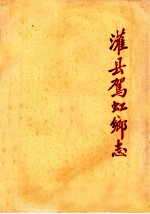 灌县驾虹鄉志